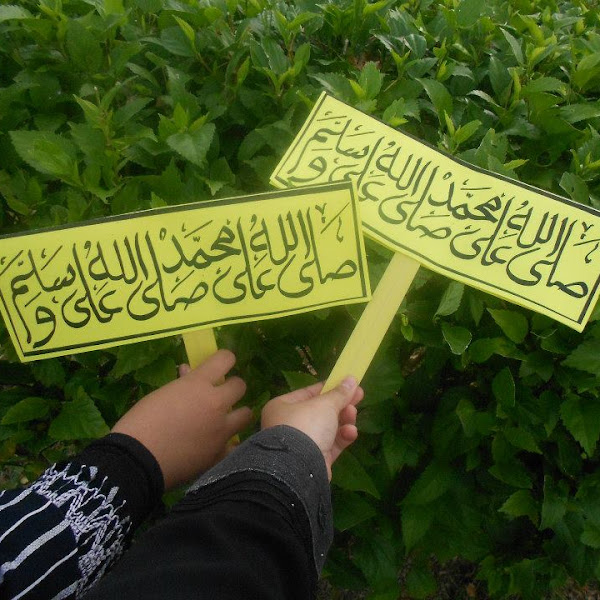 صلى الله على محمد صلى الله عليه وسلم
صلى الله على محمد صلى الله عليه وسلم